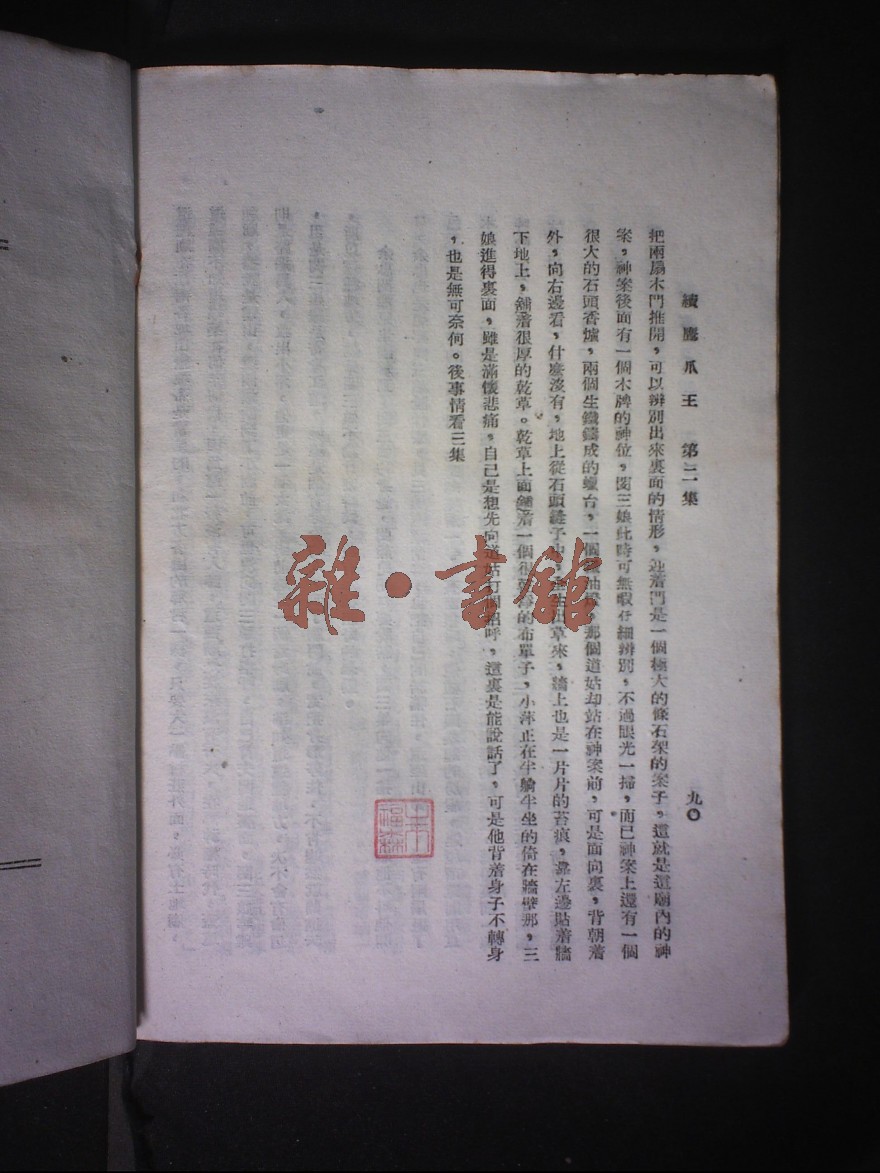 續鷹爪王　第二集
九〇
把兩扇木門推開，可以辨別出來裏面的情形，迎着門是一個極大的條石架的案子，這就是這廟內的神
案，神案後面有一個木牌的神位，閔三娘此時可無暇仔細辨別，不過眼光一掃，而已神案上還有一個
很大的石頭香爐，兩個生鐵鑄成的蠟台，一個油燈，那個道姑却站在神案前，可是面向裏，背朝着
外，向右邊看，什麼沒有，地上從石頭縫子中，生出草來，牆上也是一片片的苔痕，靠左邊貼着牆
下地上，舖着很厚的乾草。乾草上面舖着一個很乾淨的布單子，小萍正在半躺半坐的倚在牆壁那，三
娘進得裏面，雖是滿懷悲痛，自己是想先向道姑打個招呼，這裏是能說話了，可是他背着身子不轉身
，也是無可奈何。後事情看三集
雜·書館